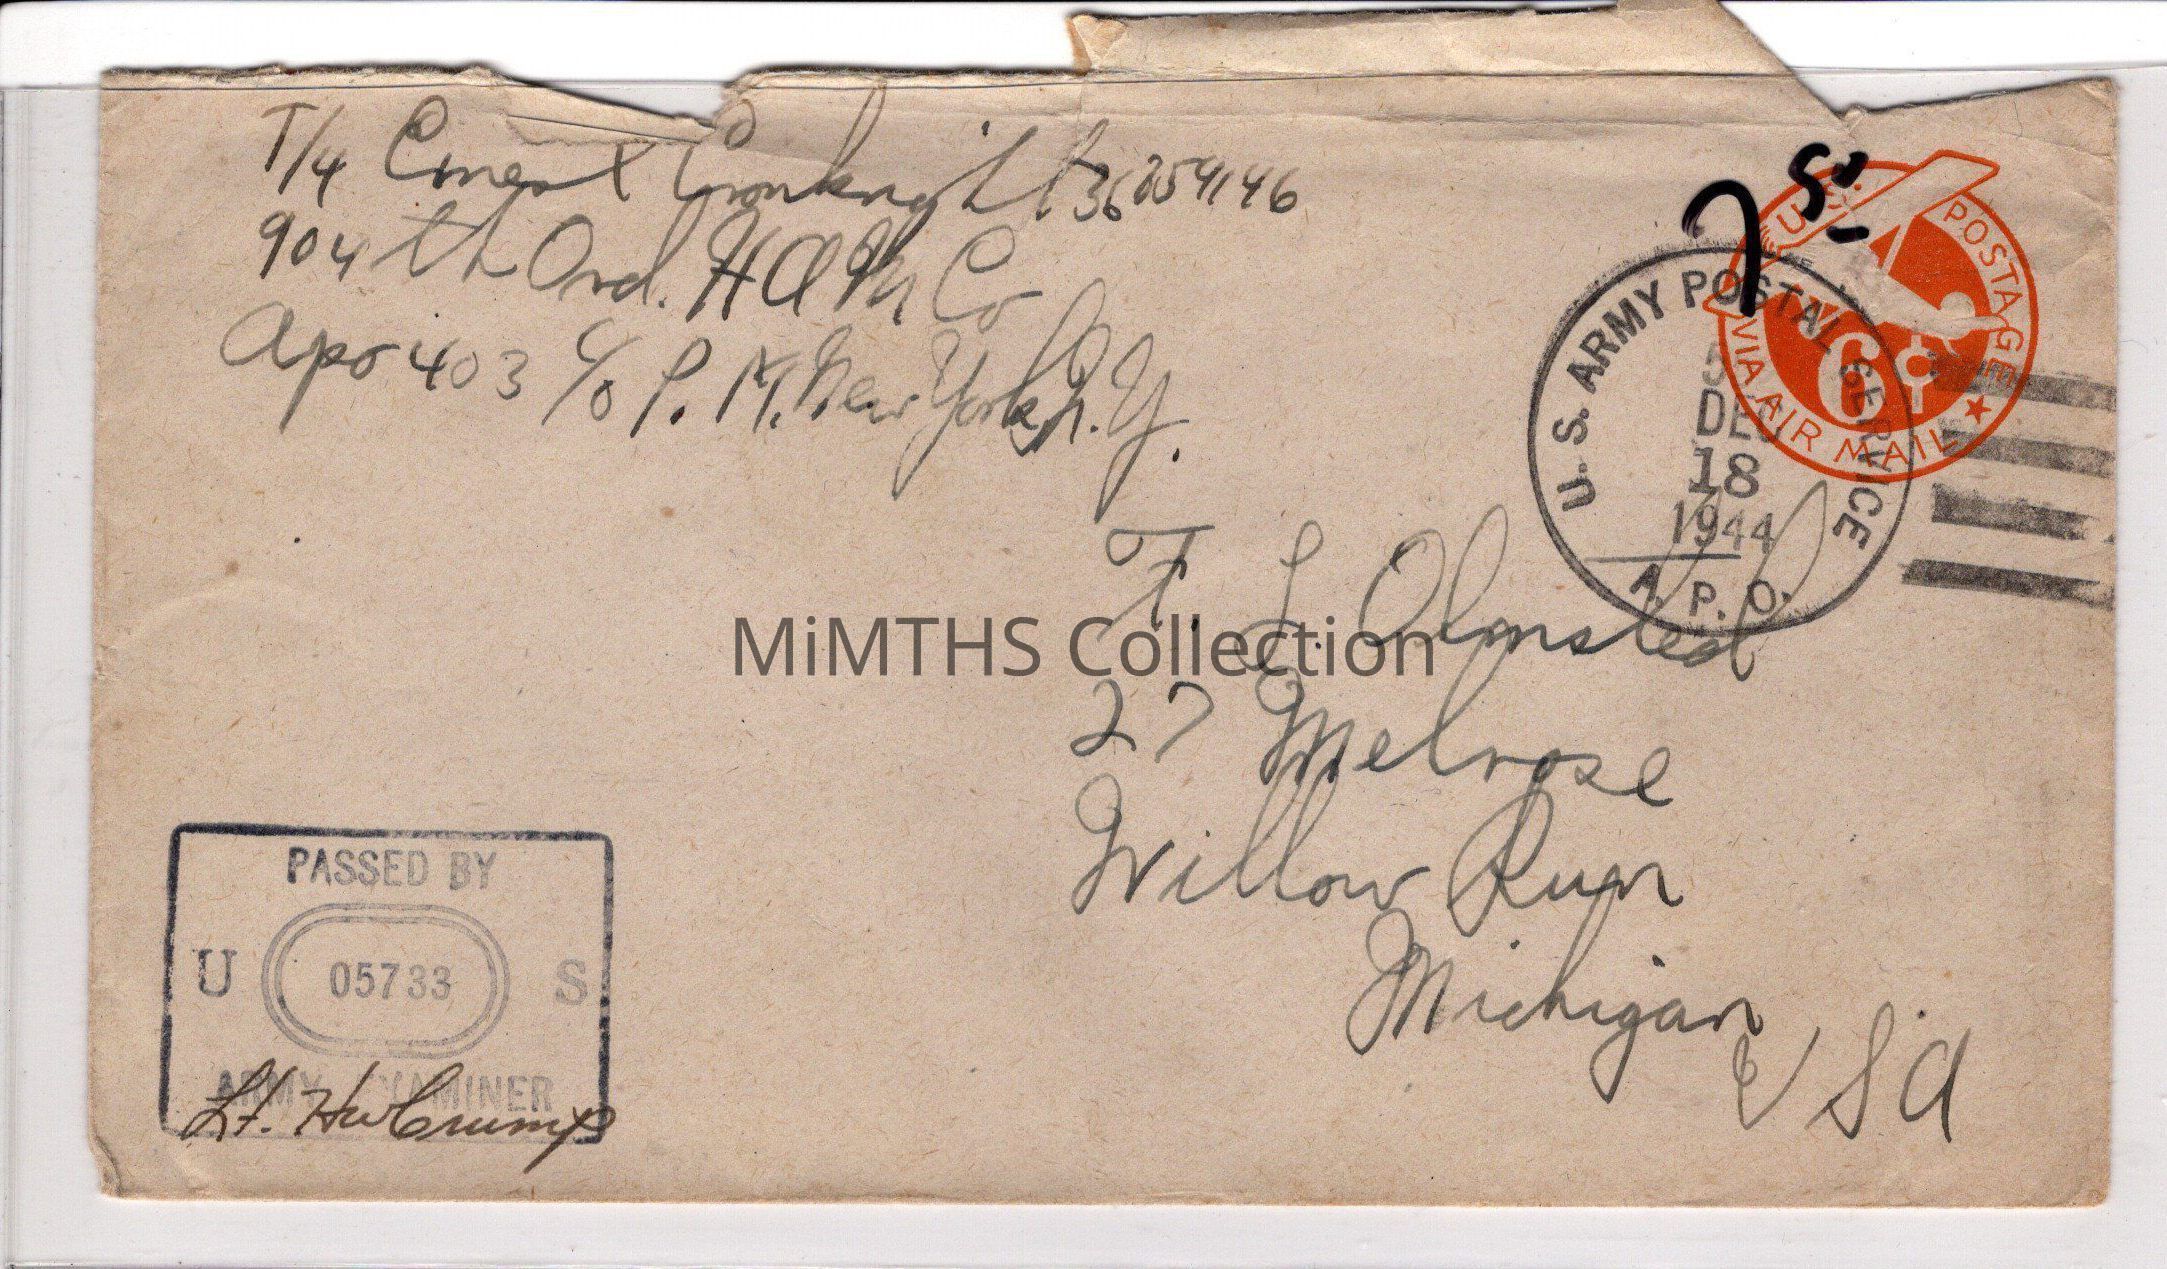 T/4 Ernest 36254146
904th Ord. HAM Co
Apo 403 c/o P.M. New York N.Y.
7 5¢
U.S. POSTAGE
6¢
VIA AIR MAIL
U. S. ARMY POSTAL SERVICE
5
DEC
18
1944
A. P. O.
T. L. Olmsted
MiMTHS Collection
27 Melrose
Willow Run
Michigan
USA
PASSED BY
U 05733 S
ARMY EXAMINER
Lt. HW Crump